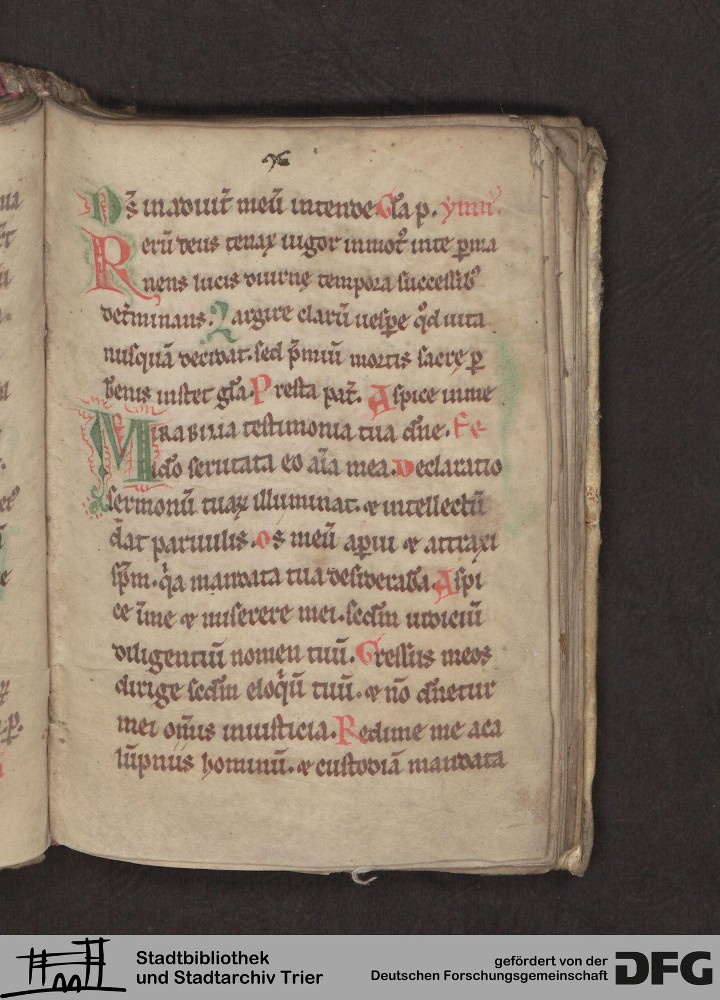 Ds̄ in adiut̄ meū intende. Gl̄a p. ymn̄.
Rerū deus tenax uigor inmot᷒ in te ꝑma
nens lucis diurnę tempora successib᷒
det̄minans. Largire clarū uesꝑe qͦd uita
nusquā decidat. sed p̄miū mortis sacrę ꝑ
hēnis instet gl̄a. Presta pat̄. Aspice in me
Mirabilia testimonia tua dn̄e. Fe
ideo scrutata eo aīa mea. Declaratio
sermonū tuaꝝ illuminat. & intellectū
dāt paruulis. Os meū aꝑui & attraxi
sp̄m. qͣa mandata tua desideraƀa. Aspi
ce ī me & miserere mei. scdm̄ iudiciū
diligentiū nomen tuū. Gressus meos
dirige scdm̄ eloqͥū tuū. & nō dn̄etur
mei om̄is iniusticia. Redime me a ca
lūpniis hominū. & custodiā mandata
Stadtbibliothek
und Stadtarchiv Trier
gefördert von der
Deutschen Forschungsgemeinschaft
DFG